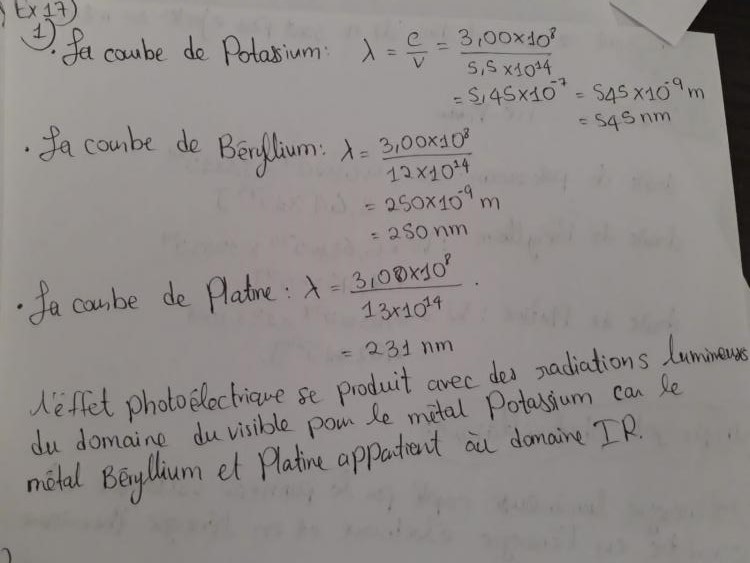 Ex 17)
1) . La courbe de Potassium: λ = c/ν = 3,00×10⁸ / 5,5×10¹⁴
= 5,45×10⁻⁷ = 545×10⁻⁹ m
= 545 nm
. La courbe de Béryllium: λ = 3,00×10⁸ / 12×10¹⁴
= 250×10⁻⁹ m
= 250 nm
. La courbe de Platine: λ = 3,00×10⁸ / 13×10¹⁴ .
= 231 nm
L'éffet photoélectrique se produit avec des radiations lumineuses
du domaine du visible pour le métal Potassium car le
métal Béryllium et Platine appartient au domaine IR.